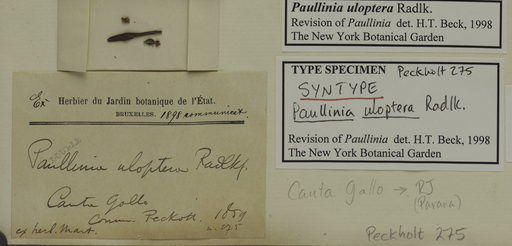 Paullinia uloptera Radlk.
Revision of Paullinia det. H.T. Beck, 1998
The New York Botanical Garden
TYPE SPECIMEN Peckholt 275
SYNTYPE
Paullinia uloptera Radlk.
Revision of Paullinia det. H.T. Beck, 1998
The New York Botanical Garden
Ex Herbier du Jardin botanique de l'État.
BRUXELLES. 1898 communicet.
Paullinia uloptera Radlkf.
Canta Gallo
Comm. Peckolt. 1859
ex herb. Mart. n. 275
Canta Gallo → RJ
(Parana)
Peckholt 275